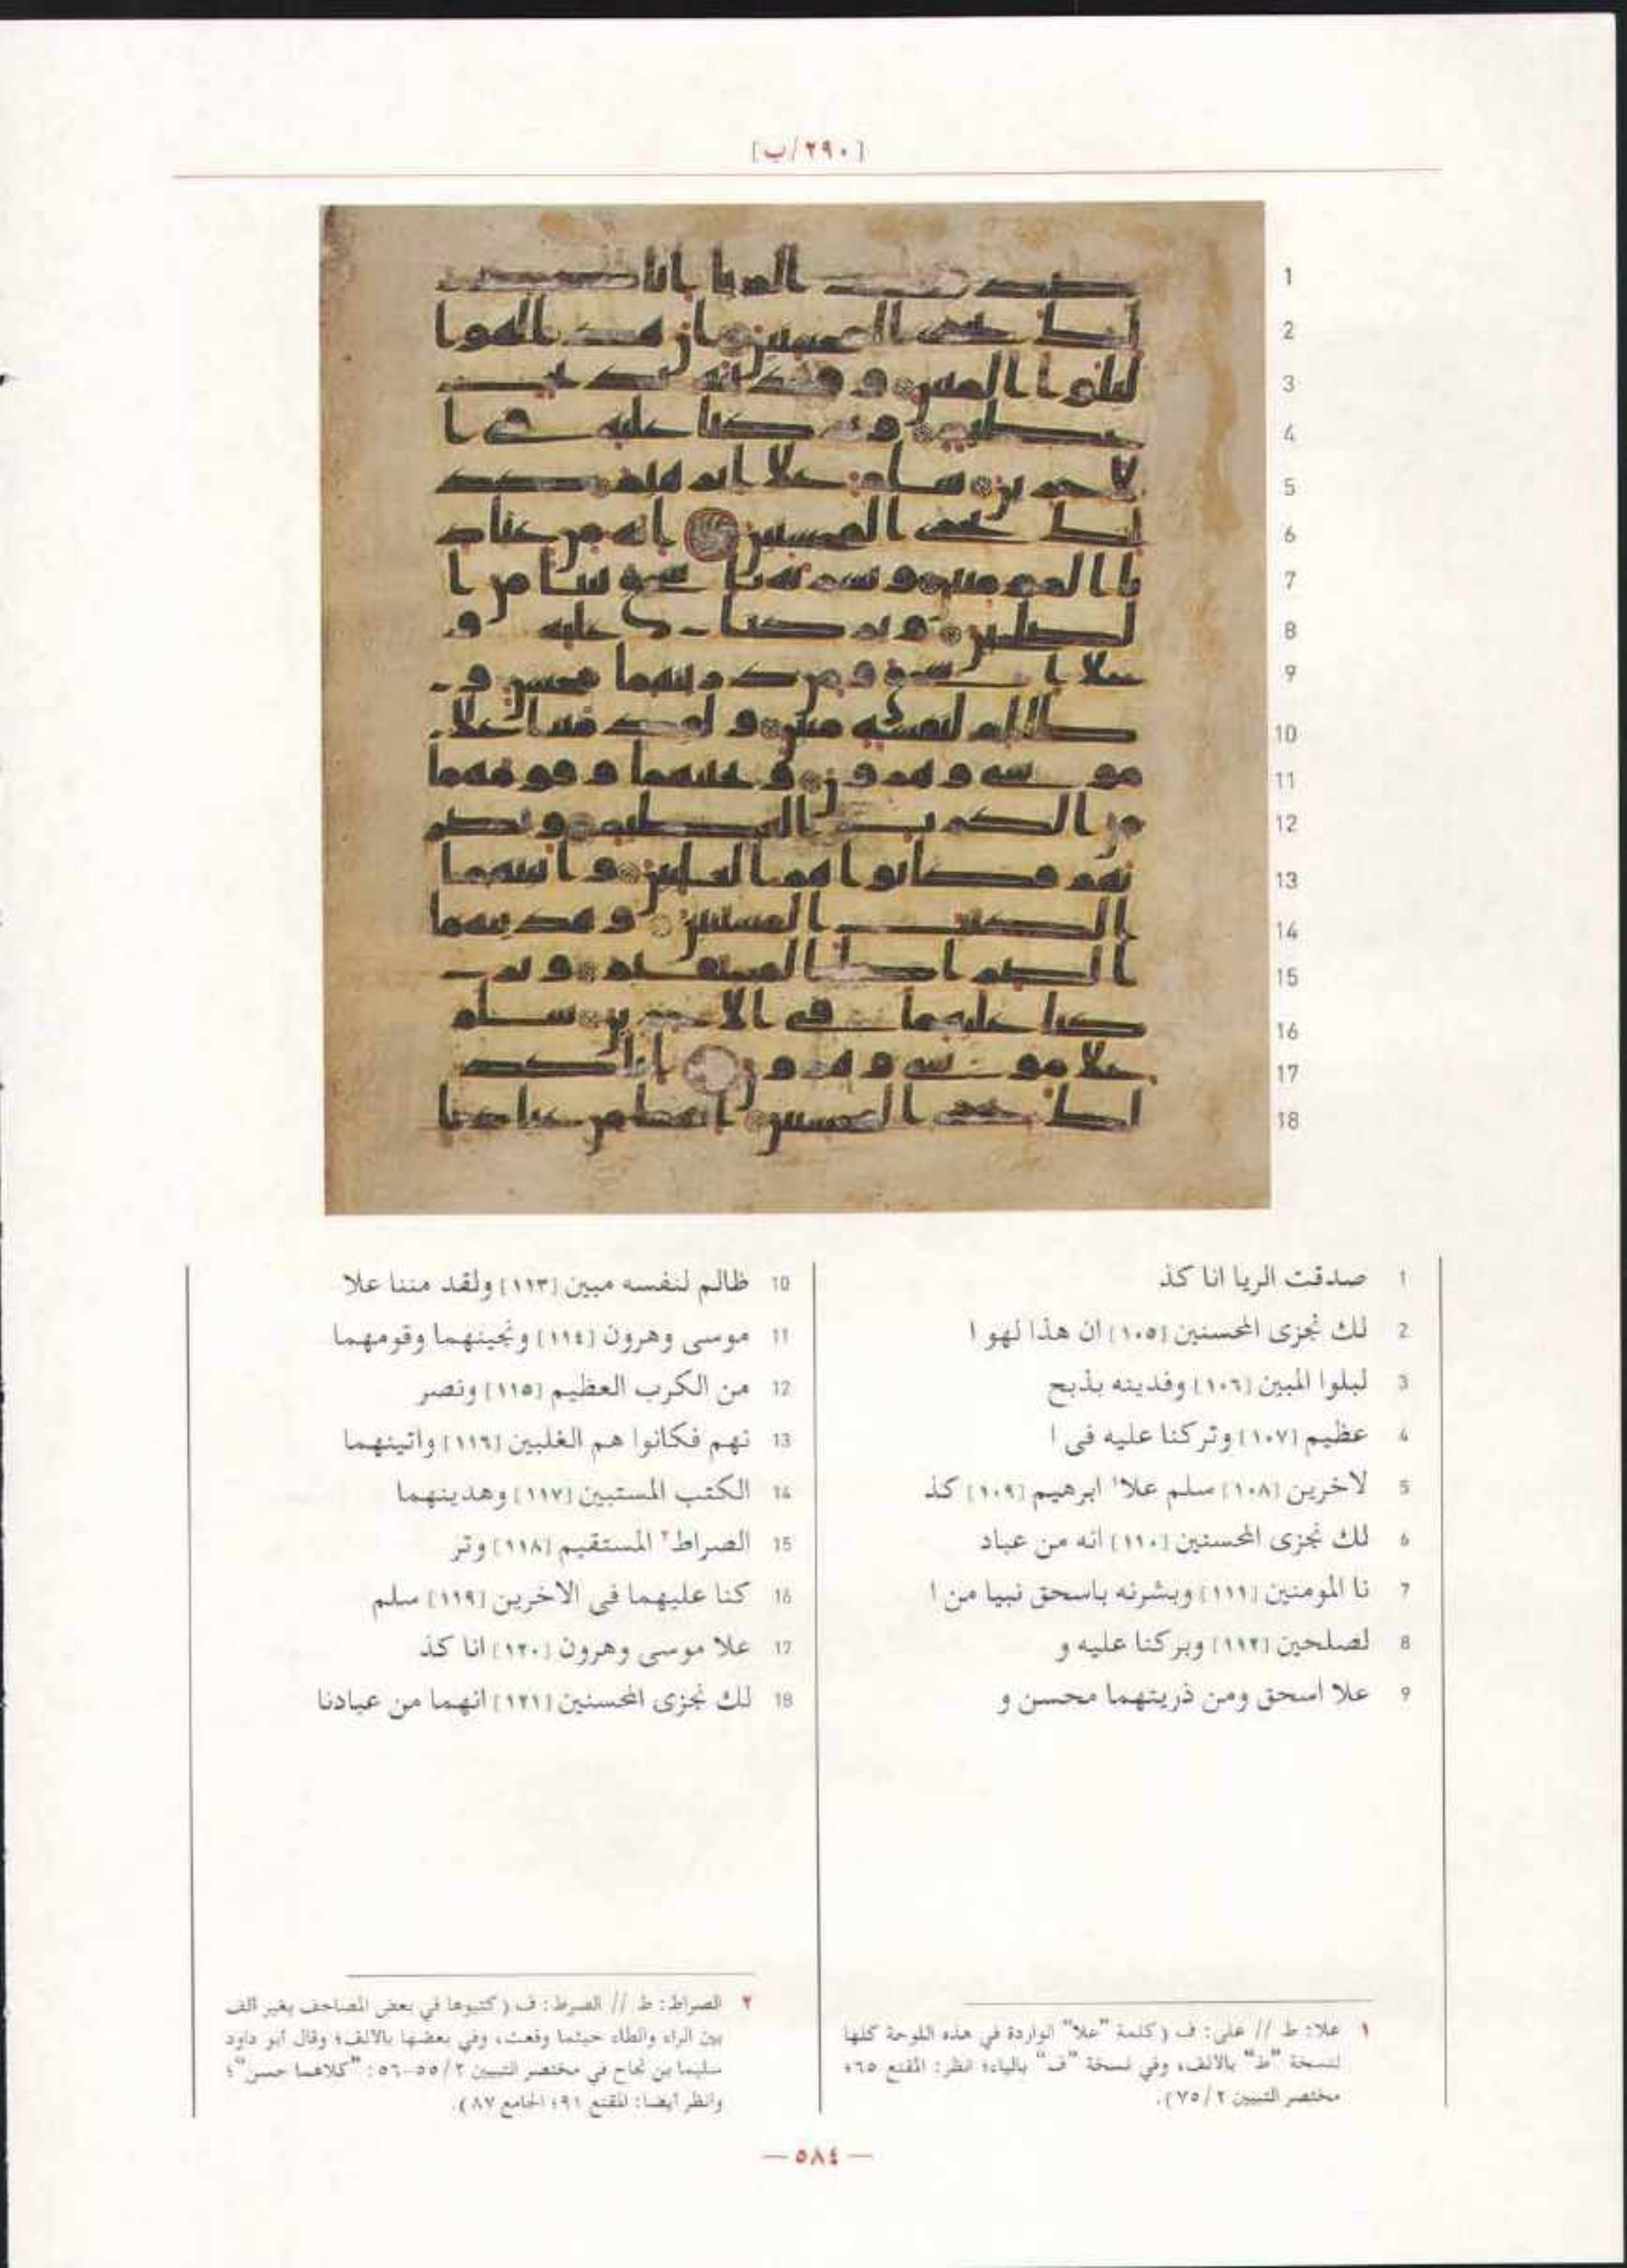 [٢٩٠/ب]
1 صدقت الريا انا كذ
2 لك نجزى المحسنين [١٠٥] ان هذا لهو ا
3 لبلوا المبين [١٠٦] وفدينه بذبح
4 عظيم [١٠٧] وتركنا عليه فى ا
5 لاخرين [١٠٨] سلم علا١ ابرهيم [١٠٩] كذ
6 لك نجزى المحسنين [١١٠] انه من عباد
7 نا المومنين [١١١] وبشرنه باسحق نبيا من ا
8 لصلحين [١١٢] وبركنا عليه و
9 علا اسحق ومن ذريتهما محسن و
10 ظالم لنفسه مبين [١١٣] ولقد مننا علا
11 موسى وهرون [١١٤] ونجينهما وقومهما
12 من الكرب العظيم [١١٥] ونصر
13 نهم فكانوا هم الغلبين [١١٦] واتينهما
14 الكتب المستبين [١١٧] وهدينهما
15 الصراط٢ المستقيم [١١٨] وتر
16 كنا عليهما فى الاخرين [١١٩] سلم
17 علا موسى وهرون [١٢٠] انا كذ
18 لك نجزى المحسنين [١٢١] انهما من عبادنا
١ علا: ط // على: ف (كلمة "علا" الواردة في هذه اللوحة كلها
لنسخة "ط" بالالف، وفي نسخة "ف" بالياء؛ انظر: المقنع ٦٥؛
مختصر التبيين ٢/٧٥).
٢ الصراط: ط // الصرط: ف (كتبوها في بعض المصاحف بغير ألف
بين الراء والطاء حيثما وقعت، وفي بعضها بالألف؛ وقال أبو داود
سليما بن نجاح في مختصر التبيين ٢/٥٥-٥٦: "كلاهما حسن"؛
وانظر أيضا: المقنع ٩١؛ الجامع ٨٧).
— ٥٨٤ —